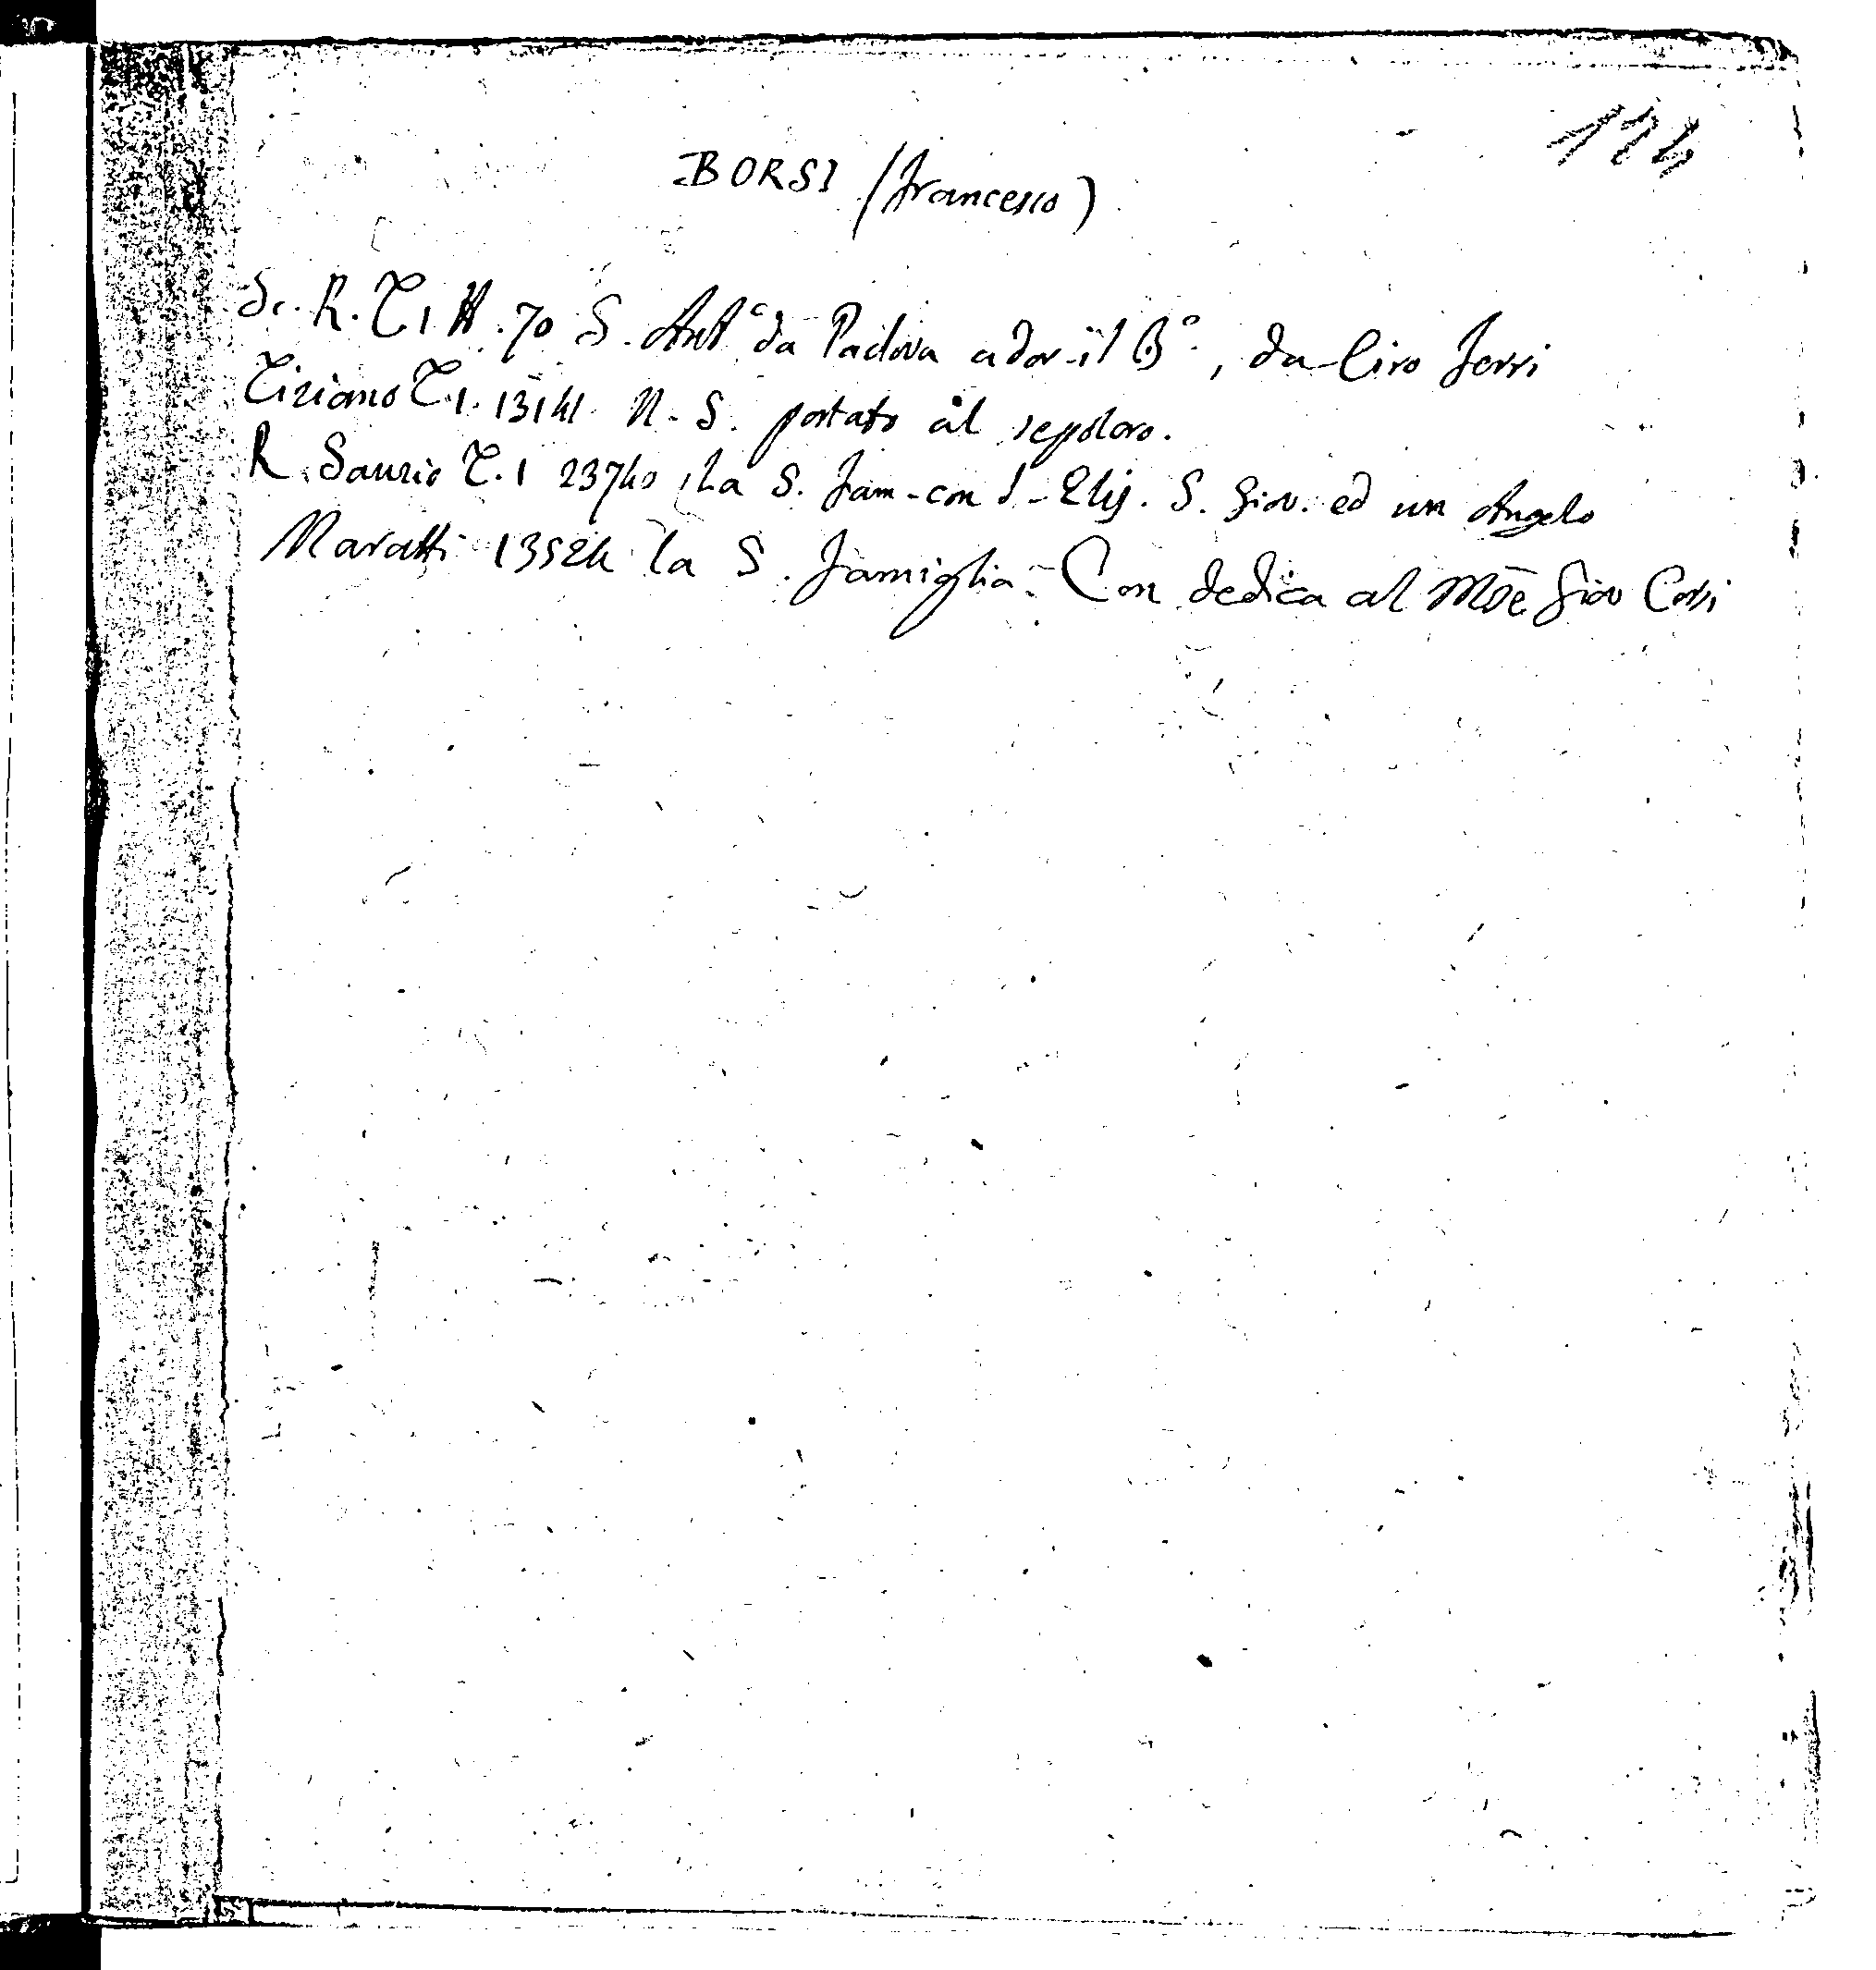 114
BORSI (Francesco)
Sc. R. T. I H. 70 S. Antº da Padova ador. il Bº., da Ciro Ferri
Tiziano T. I. 13141 N. S. portato al sepolcro.
R. Sanzio T. I 23740 La S. Fam. con S. Elis. S. Giov. ed un Angelo
Maratti 13524 la S. Famiglia. Con dedica al Giov